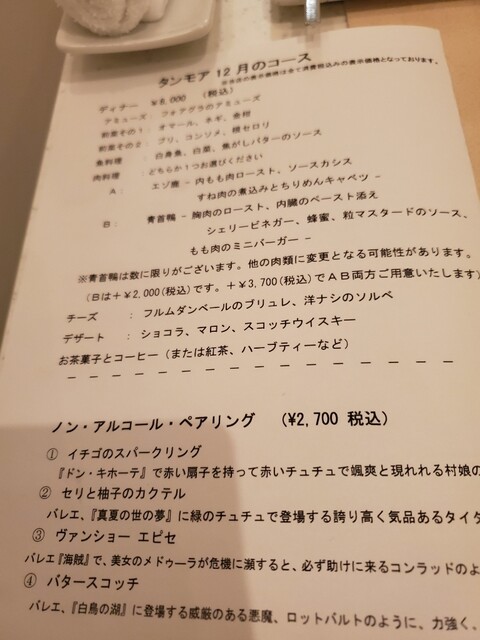 タンモア 12 月のコース
※当店の表示価格は全て消費税込みの表示価格となっております。
ディナー ¥8,000 (税込)
アミューズ : フォアグラのアミューズ
前菜その1 : オマール、ネギ、金柑
前菜その2 : ブリ、コンソメ、根セロリ
魚料理 : 白身魚、白菜、焦がしバターのソース
肉料理 : どちらか1つお選びください
A : エゾ鹿 - 内もも肉ロースト、ソースカシス
すね肉の煮込みとちりめんキャベツ -
B : 青首鴨 - 胸肉のロースト、内臓のペースト添え
シェリービネガー、蜂蜜、粒マスタードのソース、
もも肉のミニバーガー -
※青首鴨は数に限りがございます。他の肉類に変更となる可能性があります。
(Bは+¥2,000(税込)です。+¥3,700(税込)でAB両方ご用意いたします)
チーズ : フルムダンベールのブリュレ、洋ナシのソルベ
デザート : ショコラ、マロン、スコッチウイスキー
お茶菓子とコーヒー (または紅茶、ハーブティーなど)
ノン・アルコール・ペアリング (¥2,700 税込)
① イチゴのスパークリング
『ドン・キホーテ』で赤い扇子を持って赤いチュチュで颯爽と現れれる村娘の
② セリと柚子のカクテル
バレエ、『真夏の世の夢』に緑のチュチュで登場する誇り高く気品あるタイタ
③ ヴァンショー エピセ
バレエ『海賊』で、美女のメドゥーラが危機に瀕すると、必ず助けに来るコンラッドのよ
④ バタースコッチ
バレエ、『白鳥の湖』に登場する威厳のある悪魔、ロットバルトのように、力強く、